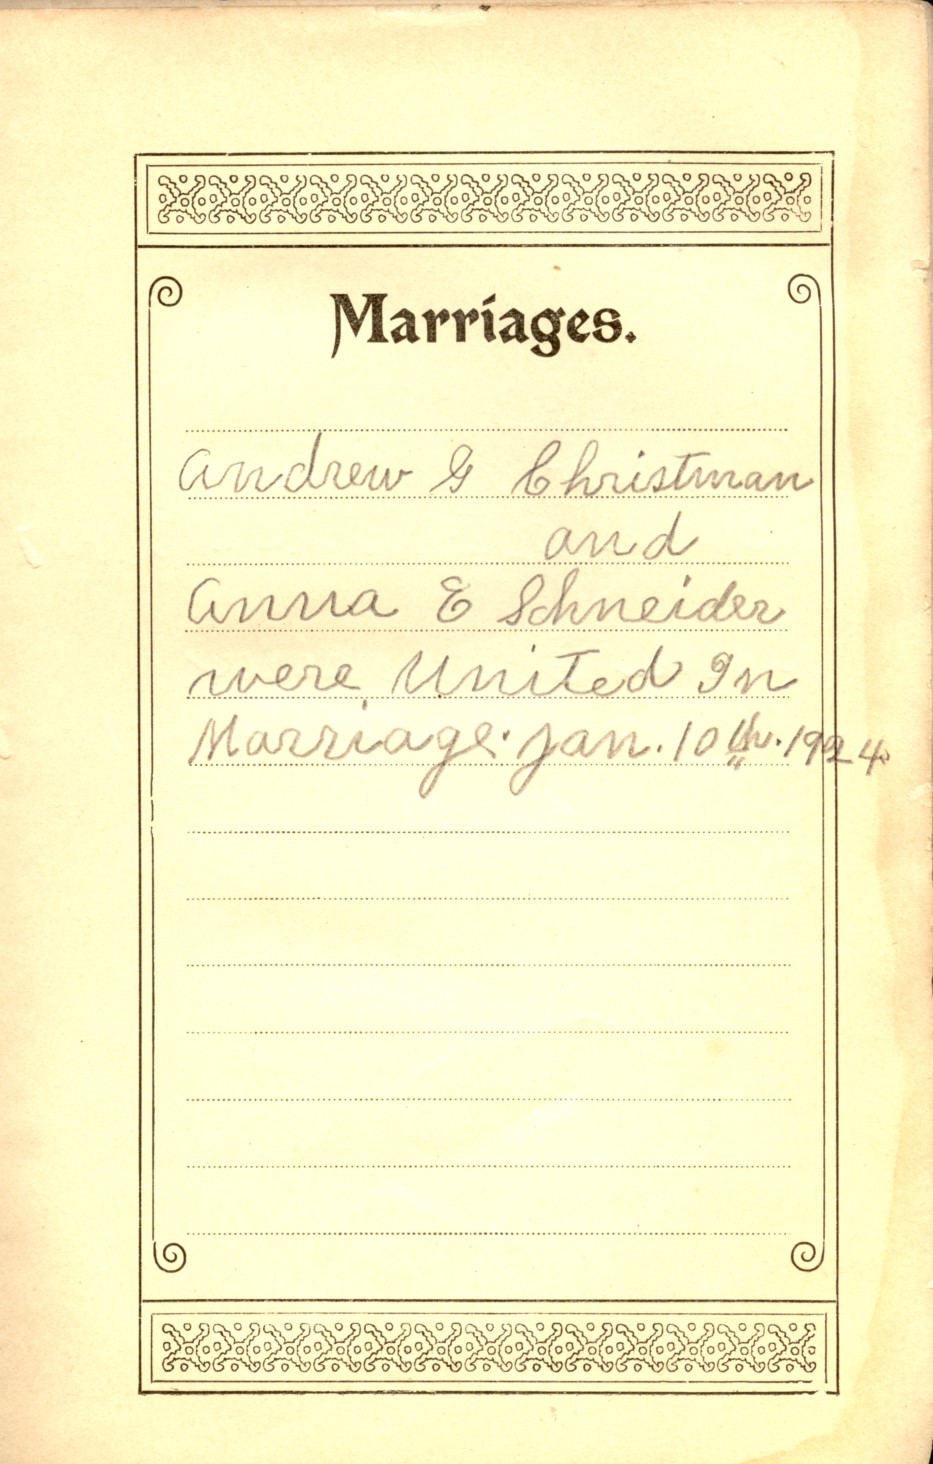 Marriages.
Andrew G Christman
and
Anna E Schneider
were United In
Marriage. Jan. 10th. 1924.